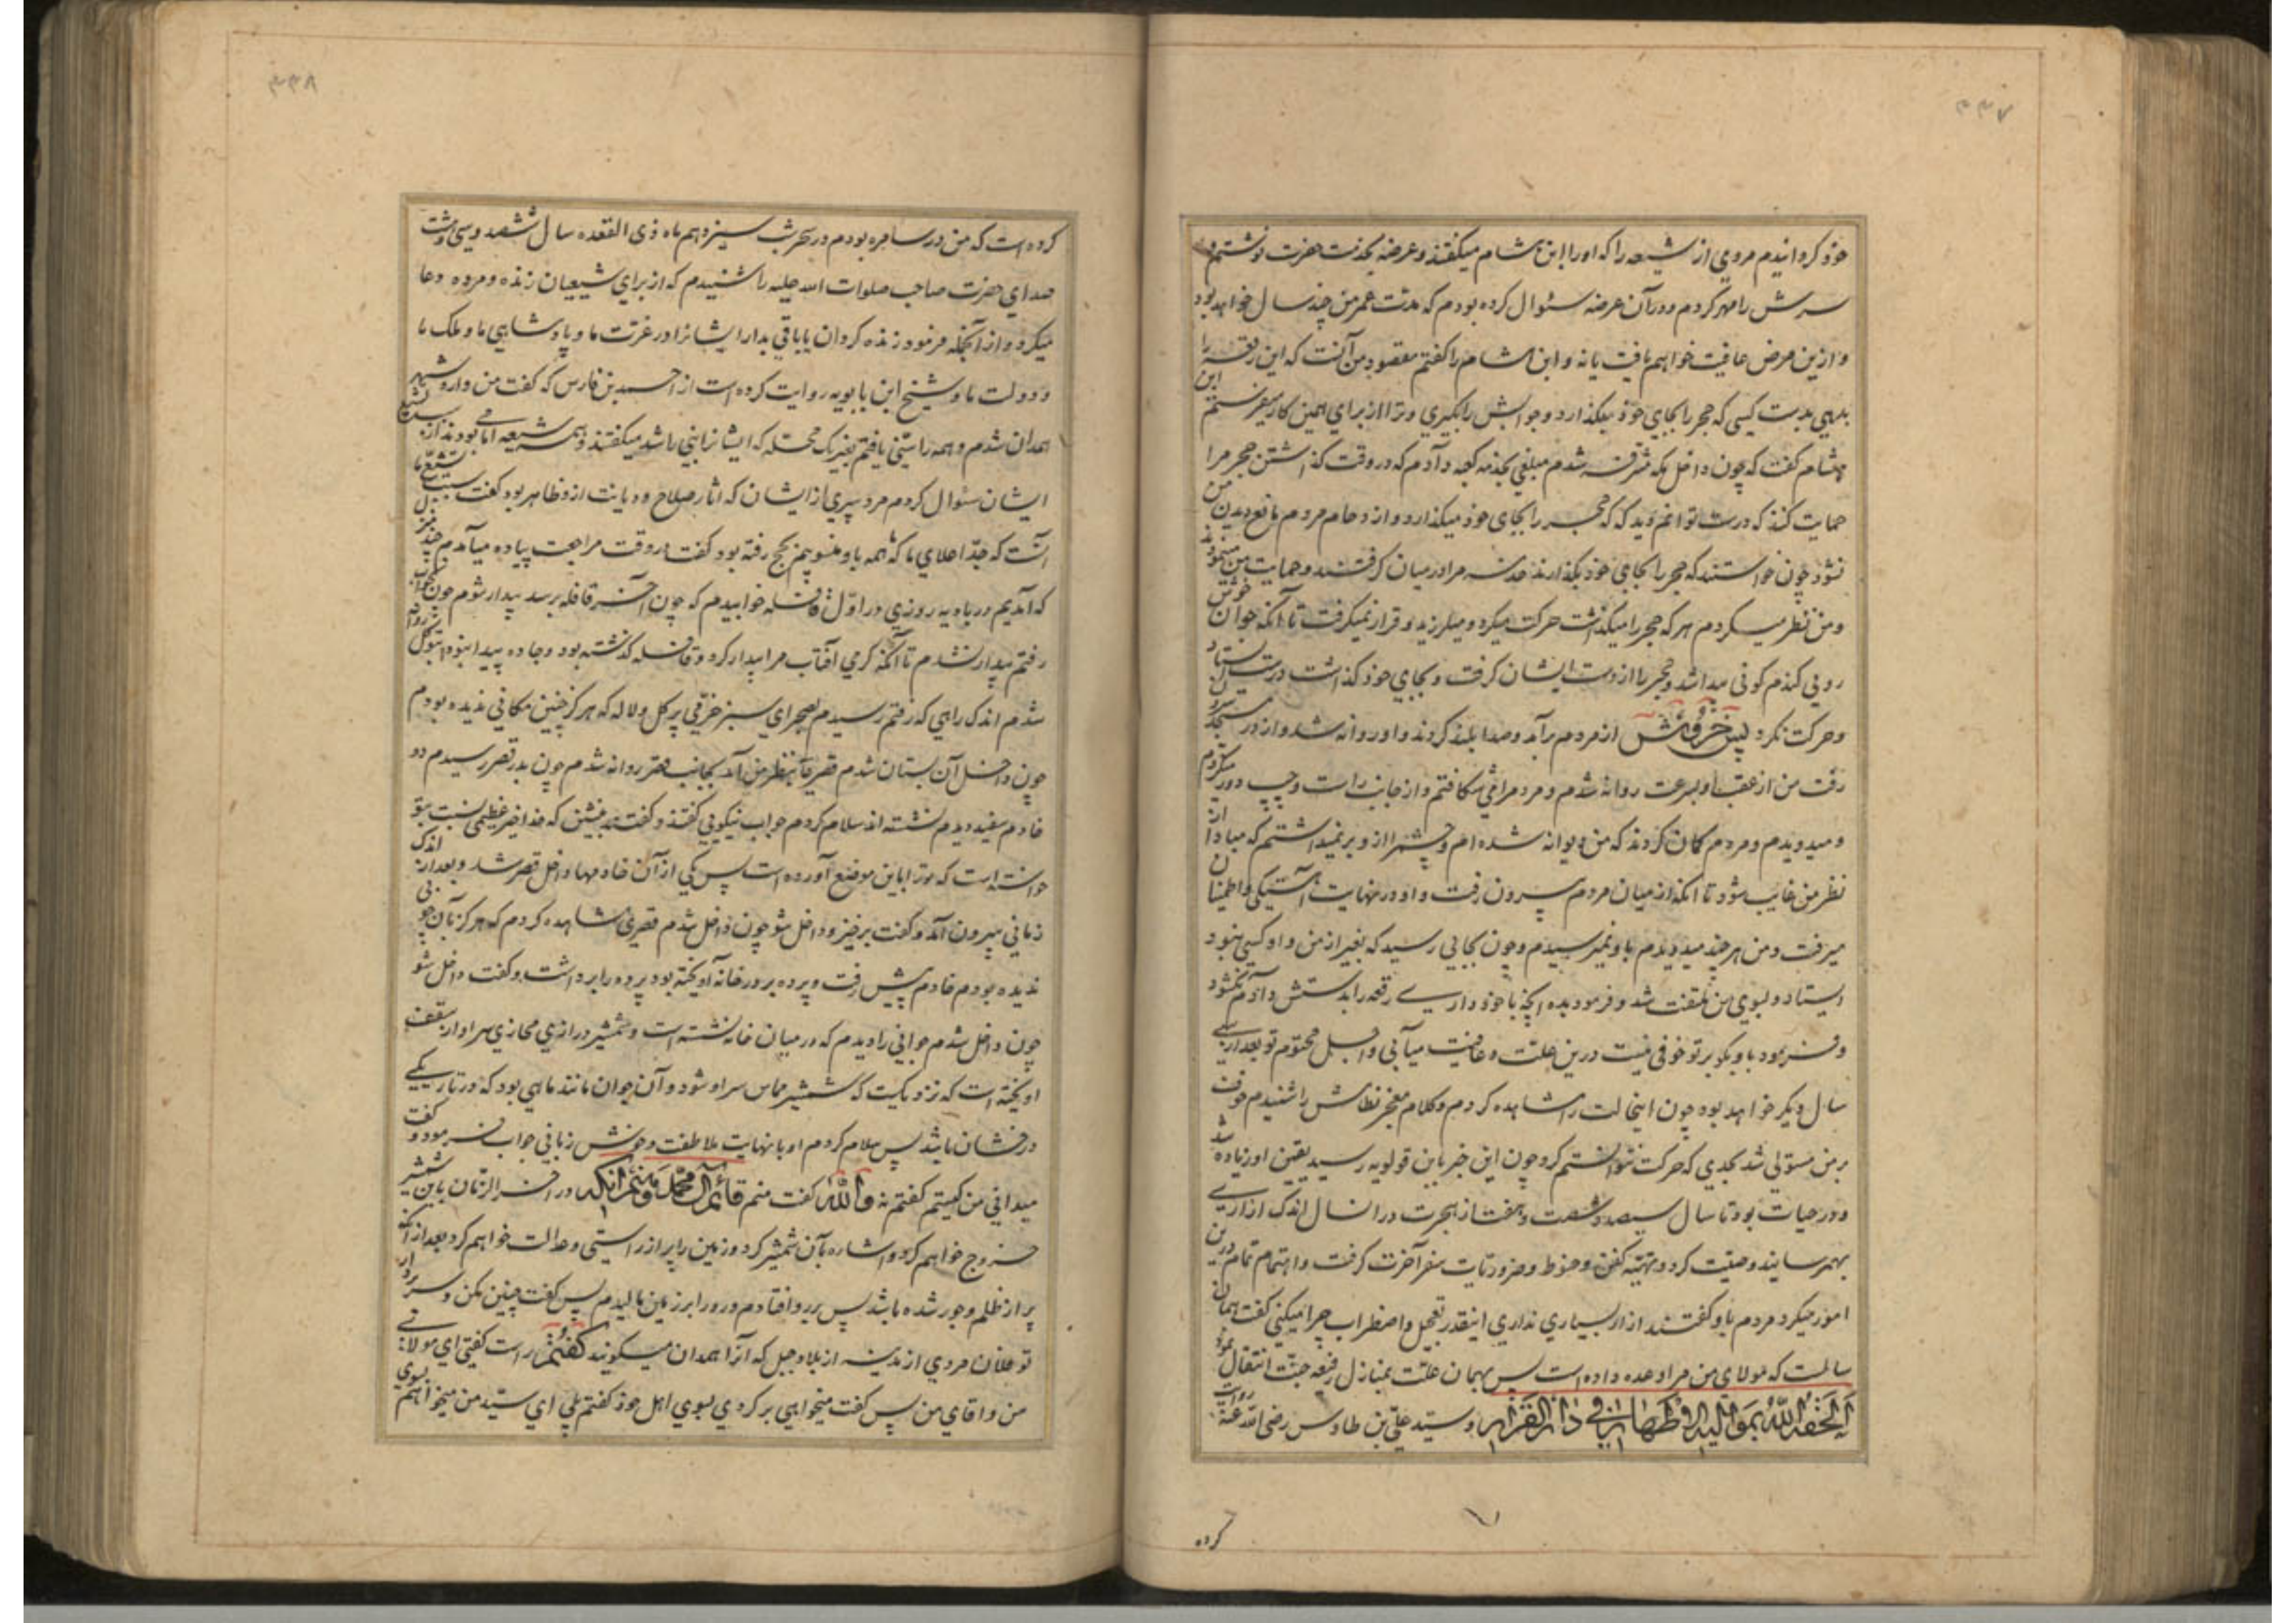 ۴۳۷
خود کردانیدم مردی از شیعه را که او را ابن هشام میگفتند و عرضهٔ بخدمت حضرت نوشتم و
سرش را مهر کردم و در آن عرضه سئوال کرده بودم که مدت عمر من چند سال خواهد بود
و ازین مرض عافیت خواهم یافت یا نه و ابن هشام را گفتم مقصود من آنست که این رقعه را
بدهی بدست کسی که حجر را بجای خود میگذارد و جوابش را بگیری و ترا از برای همین کار میفرستم ابن
هشام گفت که چون داخل مکه مشرفه شدم مبلغی بخدمه کعبه دادم که در وقت گذاشتن حجر مرا
حمایت کنند که درست توانم دید که که حجر را بجای خود میگذارد و ازدحام مردم مانع دیدن من
نشود چون خواستند که حجر را بجای خود بگذارند خدمه مرا در میان گرفتند و حمایت من مینمودند
و من نظر میکردم هر که حجر را میگذاشت حرکت میکرد و میلرزید و قرار نمیگرفت تا آنکه جوان خوش
رویی گندم گونی پیدا شد و حجر را از دست ایشان گرفت و بجای خود گذاشت درست ایستاد
و حرکت نکرد پس خروش از مردم برآمد و صدا بلند کردند و او روانه شد و از در مسجد بیرون
رفت من از عقب او بسرعت روانه شدم و مردم را میشکافتم و از جانب راست و چپ دور میکردم
و میدویدم و مردم گمان کردند که من دیوانه شده ام و چشم را از او بر نمیداشتم که مبادا از
نظر من غایب شود تا آنکه از میان مردم بیرون رفت و او در نهایت آهستگی و اطمینان
میرفت و من هر چند میدویدم باو نمیرسیدم و چون بجایی رسید که بغیر از من و او کسی نبود
ایستاد و بسوی من ملتفت شد و فرمود بده آنچه با خود داری رقعه را بدستش دادم نگشود
و فرمود باو بگو بر تو خوفی نیست درین علت و عافیت میآبی و اجل محتوم تو بعد از سی
سال دیگر خواهد بود چون اینحالت را مشاهده کردم و کلام معجز نظامش را شنیدم خوف
بر من مستولی شد بحدی که حرکت نتوانستم کرد چون این خبر بابن قولویه رسید یقین او زیاده شد
و در حیات بود تا سال سیصد و شصت و هفت از هجرت در آنسال اندک ازاری
بهمرسانید وصیت کرد و تهیهٔ کفن و حنوط و ضروریات سفر آخرت گرفت و اهتمام تمام درین
امور میکرد مردم باو گفتند ازار بسیاری نداری اینقدر تعجیل و اضطراب چرا میکنی گفت همان
سالست که مولای من مرا وعده داده است پس بهمان علت بمنازل رفیعه جنت انتقال نمود
اَلحَقَهُ اللهُ بِمَوالیهِ الاَطهارِ فی دارِ القَرارِ و سید علی بن طاوس رضی الله عنه روایت
کرده
۴۳۸
کرده است که من در سامره بودم در سحر شب سیزدهم ماه ذی القعده سال ششصد و سی و هشت
صدای حضرت صاحب صلوات الله علیه را شنیدم که از برای شیعیان زنده و مرده دعا
میکرد و از آنجمله فرمود زنده کردان یا باقی بدار ایشانرا در عزت ما و پادشاهی ما و ملک ما
و دولت ما و شیخ ابن بابویه روایت کرده است از احمد بن فارس که گفت من وارد شهر
همدان شدم و همه را سنی یافتم بغیر یک محله که ایشانرا بنی راشد میگفتند و همه شیعه امامی بودند از سبب تشیع
ایشان سئوال کردم مرد پیری از ایشان که آثار صلاح و دیانت از و ظاهر بود گفت سبب تشیع ما
آنست که جد اعلای ما که همه باو منسوبیم بحج رفته بود گفت در وقت مراجعت پیاده میآمدم چند منزل
که آمدیم در بادیه روزی در اول قافله خوابیدم که چون آخر قافله برسد بیدار شوم چون بخواب
رفتم بیدار نشدم تا آنکه گرمی آفتاب مرا بیدار کرد و قافله گذشته بود و جاده پیدا نبود بتوکل روانه
شدم اندک راهی که رفتم رسیدم بصحرای سبز خرمی پر گل و لاله که هرگز چنین مکانی ندیده بودم
چون داخل آن بستان شدم قصری بنظر من آمد بجانب قصر روانه شدم چون بدر قصر رسیدم دو
خادم سفید دیدم نشسته اند سلام کردم جواب نیکویی گفتند و گفتند بنشین که خدا خیر عظیمی نسبت بتو
خواسته است که ترا باین موضع آورده است پس یکی از آن خادمها داخل قصر شد و بعد از اندک
زمانی بیرون آمد و گفت برخیز و داخل شو چون داخل شدم قصری مشاهده کردم که هرگز بآن خوبی
ندیده بودم خادم پیش رفت و پرده بر در خانه آویخته بود پرده را برداشت و گفت داخل شو
چون داخل شدم جوانی را دیدم که در میان خانه نشسته است و شمشیر درازی محاذی سر او از سقف
آویخته است که نزدیکست که شمشیر مماس سر او شود و آن جوان مانند ماهی بود که در تاریکی
درخشان باشد پس سلام کردم او با نهایت ملاطفت و خوش زبانی جواب فرمود و گفت
میدانی من کیستم گفتم نه والله گفت منم قائم آل محمد و منم آنکه در آخر الزمان باین شمشیر
خروج خواهم کرد و اشاره بآن شمشیر کرد و زمین را پر از راستی و عدالت خواهم کرد بعد از آنکه
پر از ظلم و جور شده باشد پس بر رو افتادم و رو را بر زمین مالیدم پس گفت چنین مکن و سر بردار
تو فلان مردی از مدینه از بلاد جبل که آنرا همدان میگویند گفتم راست گفتی ای مولای
من و آقای من پس گفت میخواهی برگردی بسوی اهل خود گفتم بلی ای سید من میخواهم بسوی